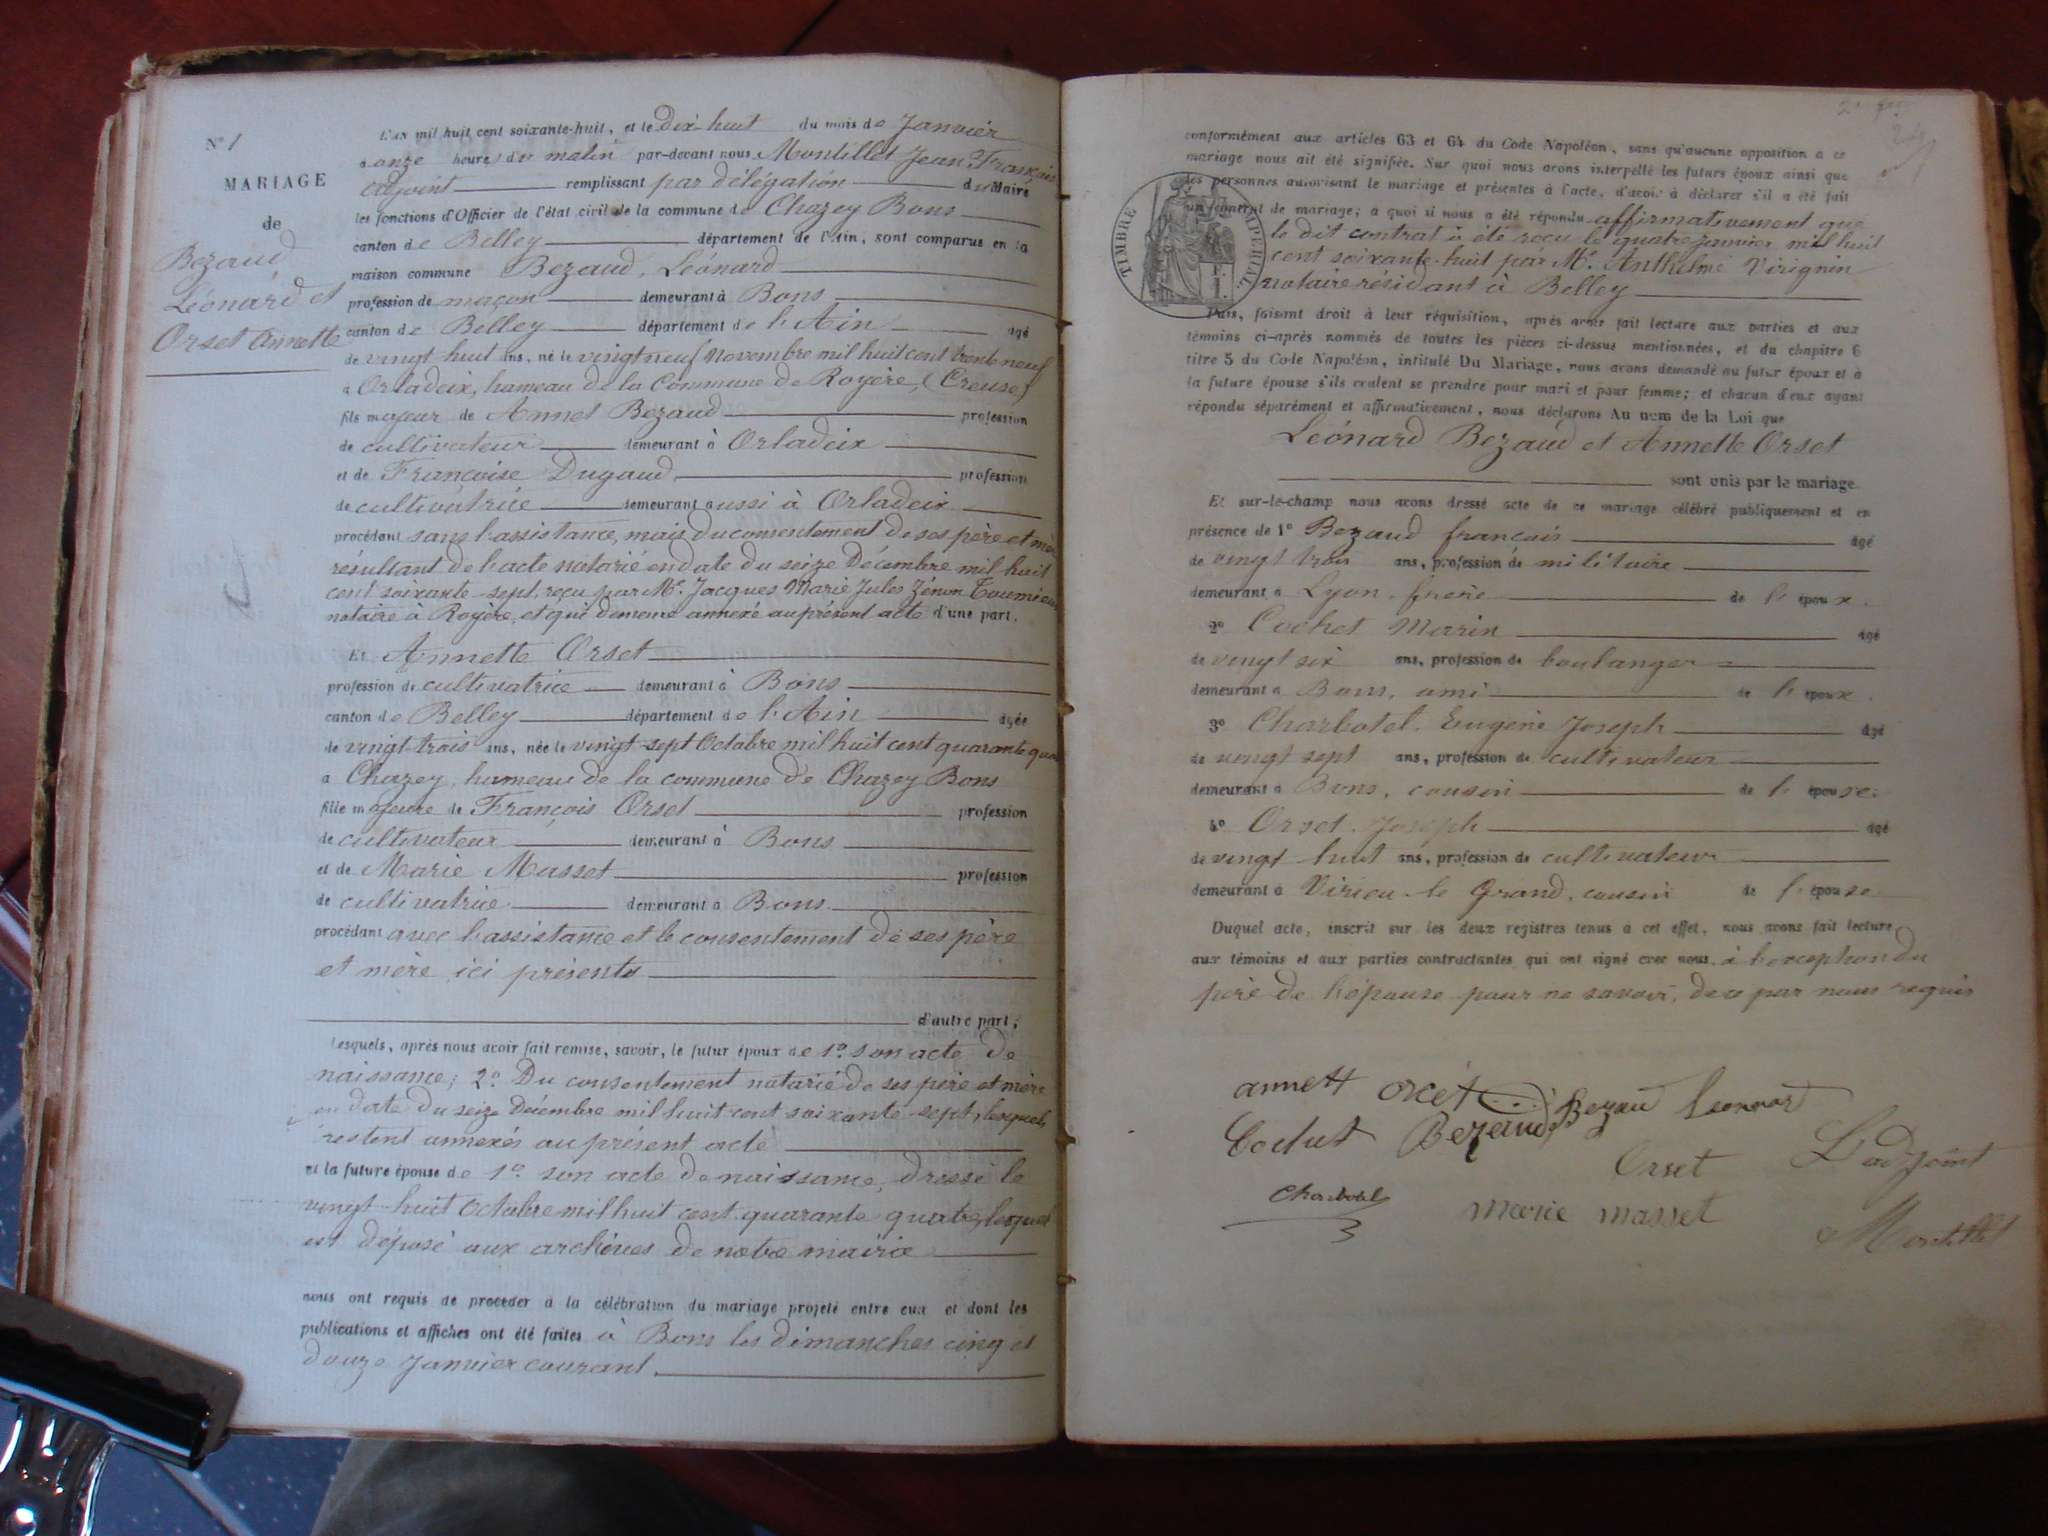 N° 1
MARIAGE
de
Bezaud
Léonard et
Orset Annette
L'an mil huit cent soixante-huit, et le dix-huit du mois de Janvier
à onze heures du matin par-devant nous Montillet Jean François
adjoint remplissant par délégation du Maire
les fonctions d'Officier de l'état civil de la commune de Chazey Bons
canton de Belley département de l'Ain, sont comparus en la
maison commune Bezaud, Léonard
profession de maçon demeurant à Bons
canton de Belley département de l'Ain agé
de vingt huit ans, né le vingt neuf Novembre mil huit cent trente neuf
à Orladeix, hameau de la Commune de Royère, (Creuse)
fils majeur de Annet Bezaud profession
de cultivateur demeurant à Orladeix
et de Françoise Dugaud profession
de cultivatrice demeurant aussi à Orladeix
procédant sans l'assistance, mais du consentement de ses père et mère
résultant de l'acte notarié en date du seize Décembre mil huit
cent soixante-sept, reçu par Me. Jacques Marie Jules Zénon
notaire à Royère, et qui demeure annexé au présent acte d'une part.
Et Annette Orset
profession de cultivatrice demeurant à Bons
canton de Belley département de l'Ain agée
de vingt-trois ans, née le vingt-sept Octobre mil huit cent quarante
à Chazey, hameau de la commune de Chazey Bons
fille majeure de François Orset profession
de cultivateur demeurant à Bons
et de Marie Masset profession
de cultivatrice demeurant à Bons
procédant avec l'assistance et le consentement de ses père
et mère ici présents
d'autre part;
lesquels, après nous avoir fait remise, savoir, le futur époux de 1°. son acte de
naissance; 2°. Du consentement notarié de ses père et mère
en date du seize Décembre mil huit cent soixante-sept, lesquels
restent annexés au présent acte
et la future épouse de 1° son acte de naissance, dressé le
vingt-huit Octobre mil huit cent quarante quatre, lequel
est déposé aux archives de notre mairie
nous ont requis de procéder à la célébration du mariage projeté entre eux et dont les
publications et affiches ont été faites à Bons les dimanches cinq et
douze Janvier courant
conformément aux articles 63 et 64 du Code Napoléon, sans qu'aucune opposition a ce
mariage nous ait été signifiée. Sur quoi nous avons interpellé les futurs époux ainsi que
les personnes autorisant le mariage et présentes à l'acte, d'avoir à déclarer s'il a été fait
un contrat de mariage; a quoi il nous a été répondu affirmativement que
le dit contrat à été reçu le quatre janvier mil huit
cent soixante-huit par Me. Anthelme Virignin
notaire résidant à Belley
TIMBRE IMPÉRIAL
Puis, faisant droit à leur réquisition, après avoir fait lecture aux parties et aux
témoins ci-après nommés de toutes les pièces ci-dessus mentionnées, et du chapitre 6
titre 5 du Code Napoléon, intitulé Du Mariage, nous avons demandé au futur époux et à
la future épouse s'ils veulent se prendre pour mari et pour femme; et chacun d'eux ayant
répondu séparément et affirmativement, nous déclarons Au nom de la Loi que
Léonard Bezaud et Annette Orset
sont unis par le mariage
Et sur-le-champ nous avons dressé acte de ce mariage célébré publiquement et en
présence de 1° Bezaud françois agé
de vingt trois ans, profession de militaire
demeurant à Lyon, frère de l'époux.
2° Cochet Marin agé
de vingt six ans, profession de boulanger
demeurant à Bons, ami de l'époux.
3° Charbotel Eugène Joseph agé
de vingt sept ans, profession de cultivateur
demeurant à Bons, cousin de l'épouse.
4° Orset Joseph agé
de vingt huit ans, profession de cultivateur
demeurant à Virieu-le Grand, cousin de l'épouse
Duquel acte, inscrit sur les deux registres tenus a cet effet, nous avons fait lecture
aux témoins et aux parties contractantes qui ont signé avec nous à l'exception du
père de l'épouse pour ne savoir, de ce par nous requis
annett orcet Bezau leonnard
Cochet Bezaud
Orset L'adjoint
Charbotel marie masset Montillet